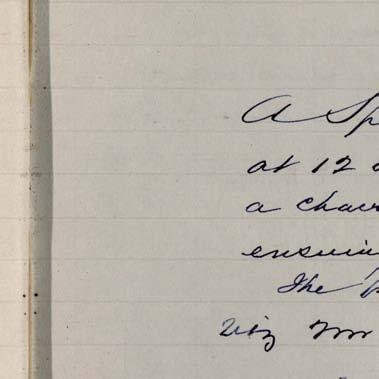 A Sp
at 12
a chair
ensuin
The
viz Mr